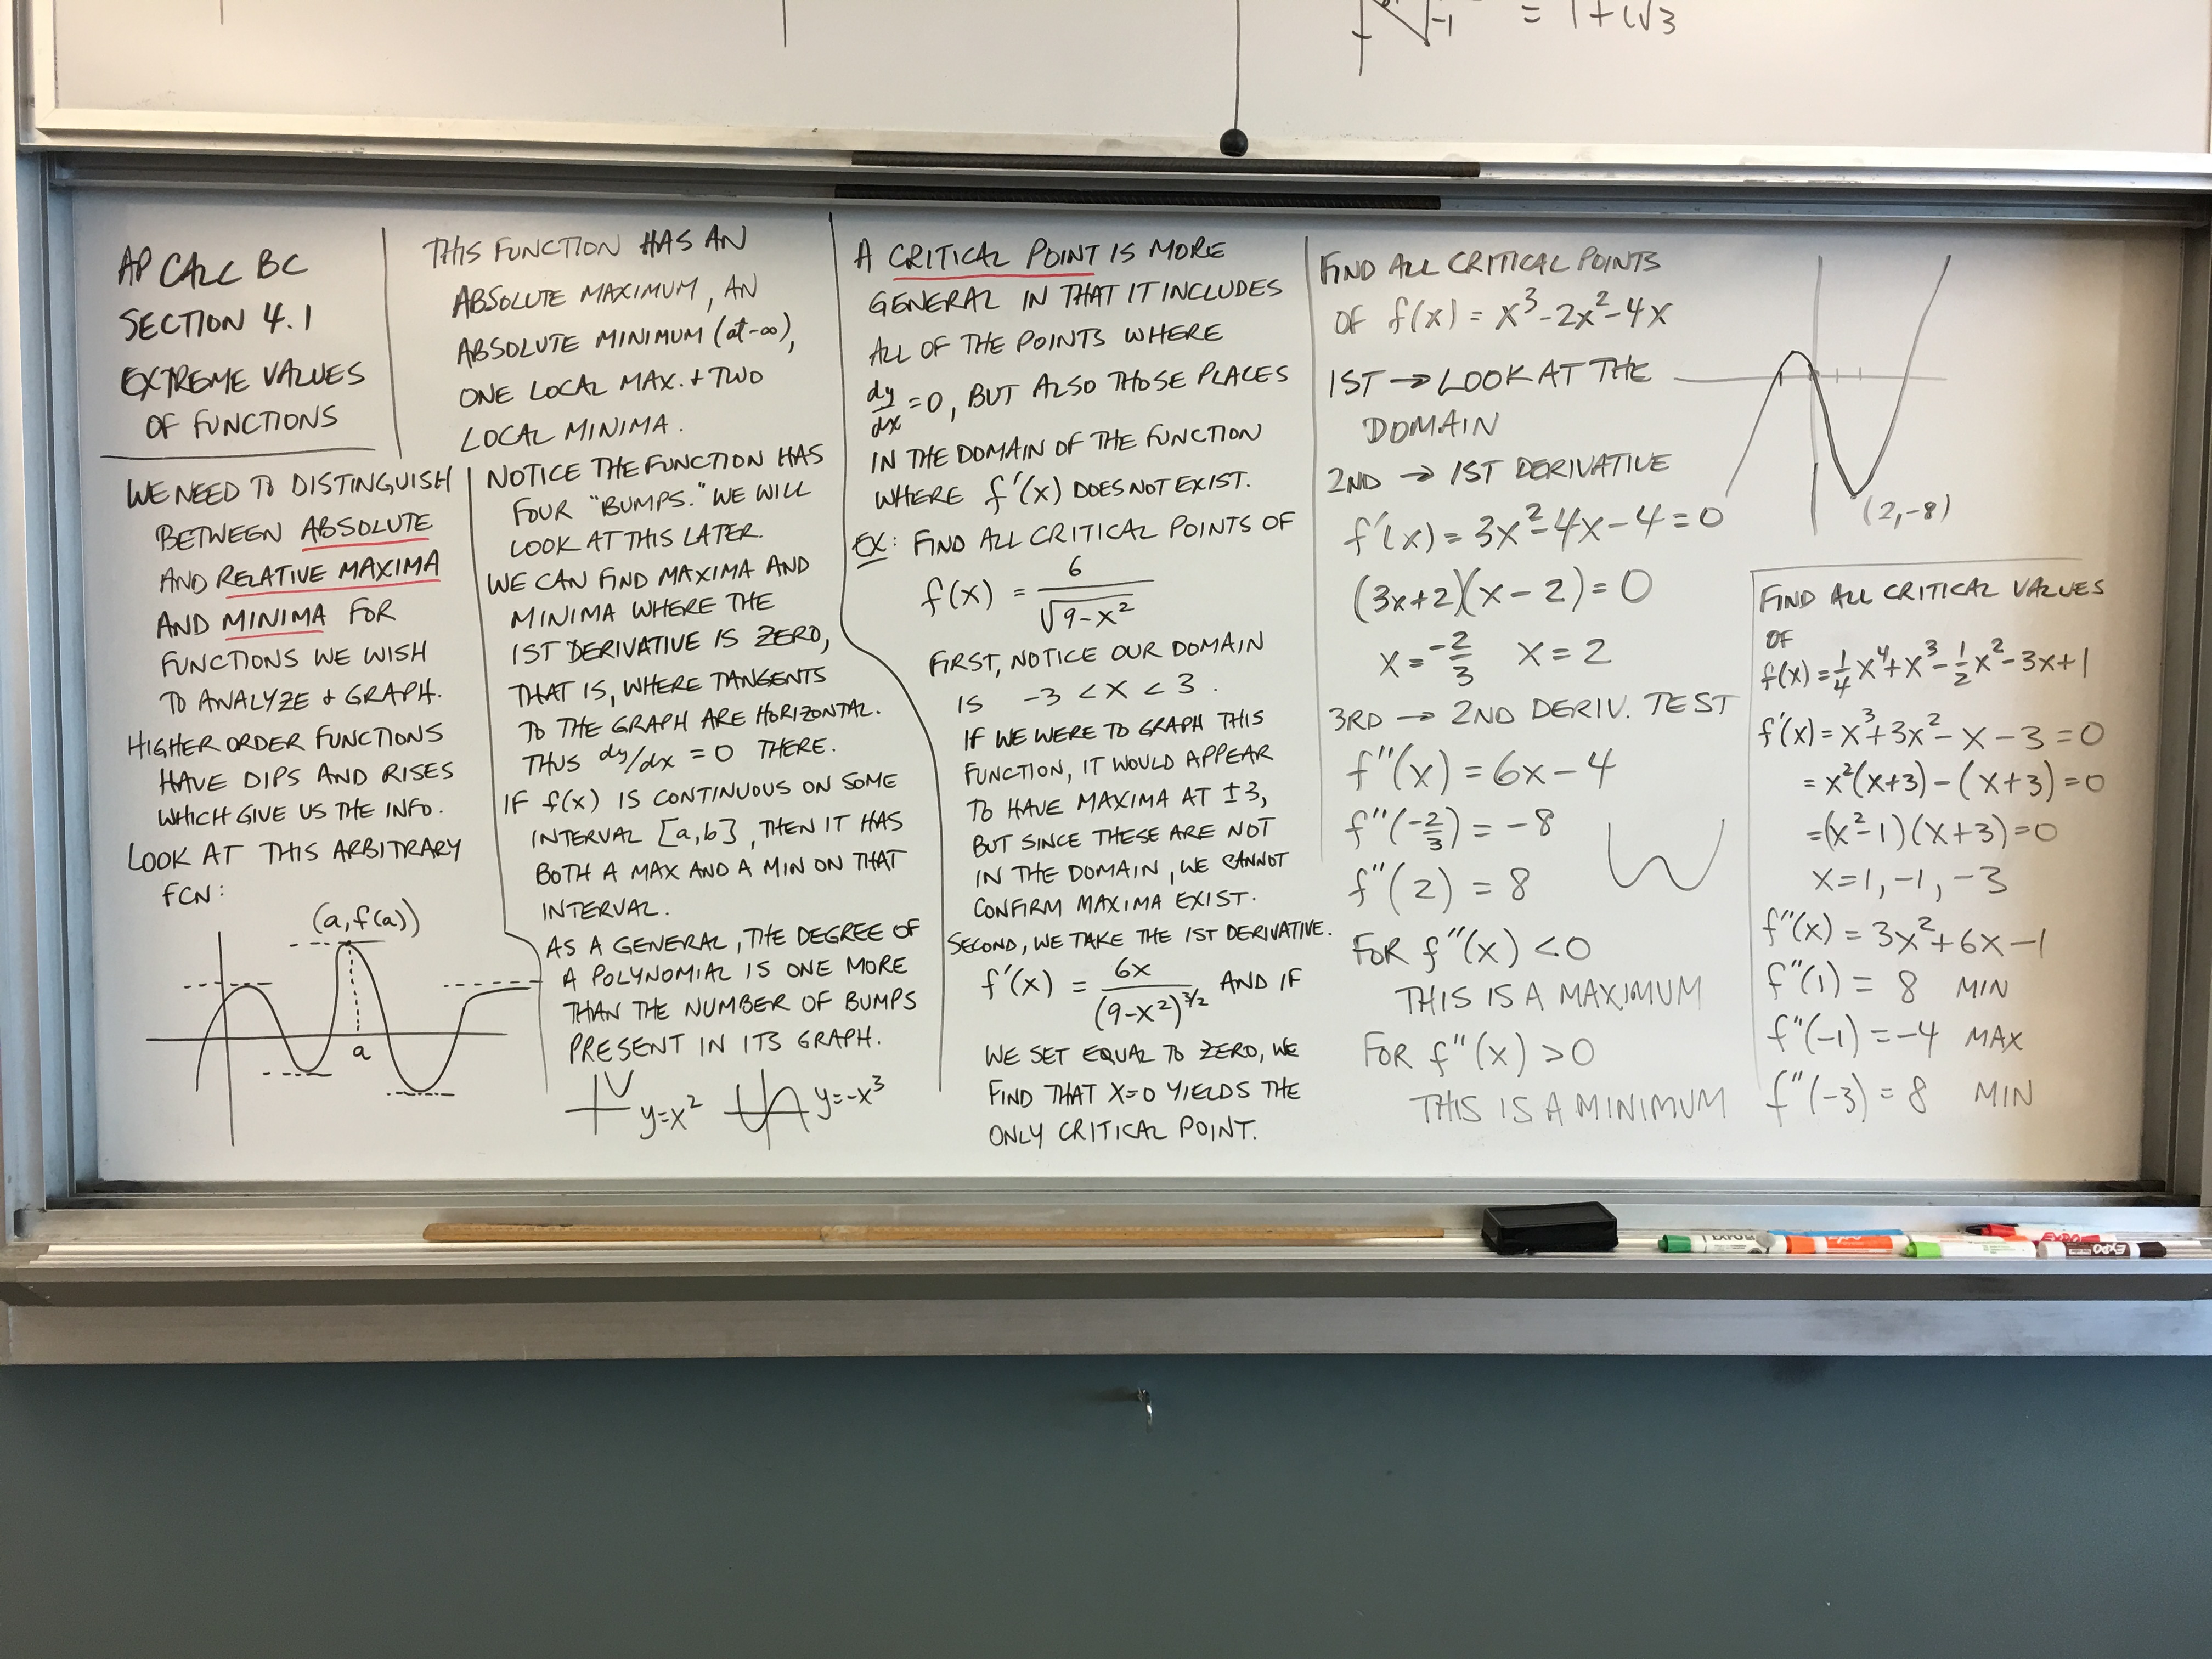 = 1+i√3
-1
AP CALC BC
SECTION 4.1
EXTREME VALUES
OF FUNCTIONS
WE NEED TO DISTINGUISH
BETWEEN ABSOLUTE
AND RELATIVE MAXIMA
AND MINIMA FOR
FUNCTIONS WE WISH
TO ANALYZE + GRAPH.
HIGHER ORDER FUNCTIONS
HAVE DIPS AND RISES
WHICH GIVE US THE INFO.
LOOK AT THIS ARBITRARY
FCN:
(a, f(a))
a
THIS FUNCTION HAS AN
ABSOLUTE MAXIMUM, AN
ABSOLUTE MINIMUM (at -∞),
ONE LOCAL MAX. + TWO
LOCAL MINIMA.
NOTICE THE FUNCTION HAS
FOUR "BUMPS." WE WILL
LOOK AT THIS LATER.
WE CAN FIND MAXIMA AND
MINIMA WHERE THE
1ST DERIVATIVE IS ZERO,
THAT IS, WHERE TANGENTS
TO THE GRAPH ARE HORIZONTAL.
THUS dy/dx = 0 THERE.
IF f(x) IS CONTINUOUS ON SOME
INTERVAL [a,b], THEN IT HAS
BOTH A MAX AND A MIN ON THAT
INTERVAL.
AS A GENERAL, THE DEGREE OF
A POLYNOMIAL IS ONE MORE
THAN THE NUMBER OF BUMPS
PRESENT IN ITS GRAPH.
y=x² y=-x³
A CRITICAL POINT IS MORE
GENERAL IN THAT IT INCLUDES
ALL OF THE POINTS WHERE
dy/dx = 0, BUT ALSO THOSE PLACES
IN THE DOMAIN OF THE FUNCTION
WHERE f'(x) DOES NOT EXIST.
EX: FIND ALL CRITICAL POINTS OF
f(x) = 6/√(9-x²)
FIRST, NOTICE OUR DOMAIN
IS -3 < x < 3.
IF WE WERE TO GRAPH THIS
FUNCTION, IT WOULD APPEAR
TO HAVE MAXIMA AT ±3,
BUT SINCE THESE ARE NOT
IN THE DOMAIN, WE CANNOT
CONFIRM MAXIMA EXIST.
SECOND, WE TAKE THE 1ST DERIVATIVE.
f'(x) = 6x/(9-x²)^3/2 AND IF
WE SET EQUAL TO ZERO, WE
FIND THAT X=0 YIELDS THE
ONLY CRITICAL POINT.
FIND ALL CRITICAL POINTS
OF f(x) = x³-2x²-4x
1ST → LOOK AT THE
DOMAIN
2ND → 1ST DERIVATIVE
f'(x) = 3x²-4x-4 = 0
(3x+2)(x-2) = 0
x = -2/3 x = 2
3RD → 2ND DERIV. TEST
f"(x) = 6x-4
f"(-2/3) = -8
f"(2) = 8
FOR f"(x) < 0
THIS IS A MAXIMUM
FOR f"(x) > 0
THIS IS A MINIMUM
(2,-8)
FIND ALL CRITICAL VALUES
OF
f(x) = 1/4x⁴+x³-1/2x²-3x+1
f'(x) = x³+3x²-x-3 = 0
= x²(x+3)-(x+3) = 0
= (x²-1)(x+3) = 0
x = 1, -1, -3
f"(x) = 3x²+6x-1
f"(1) = 8 MIN
f"(-1) = -4 MAX
f"(-3) = 8 MIN
EXPO
EXPO
EXPO
EXPO